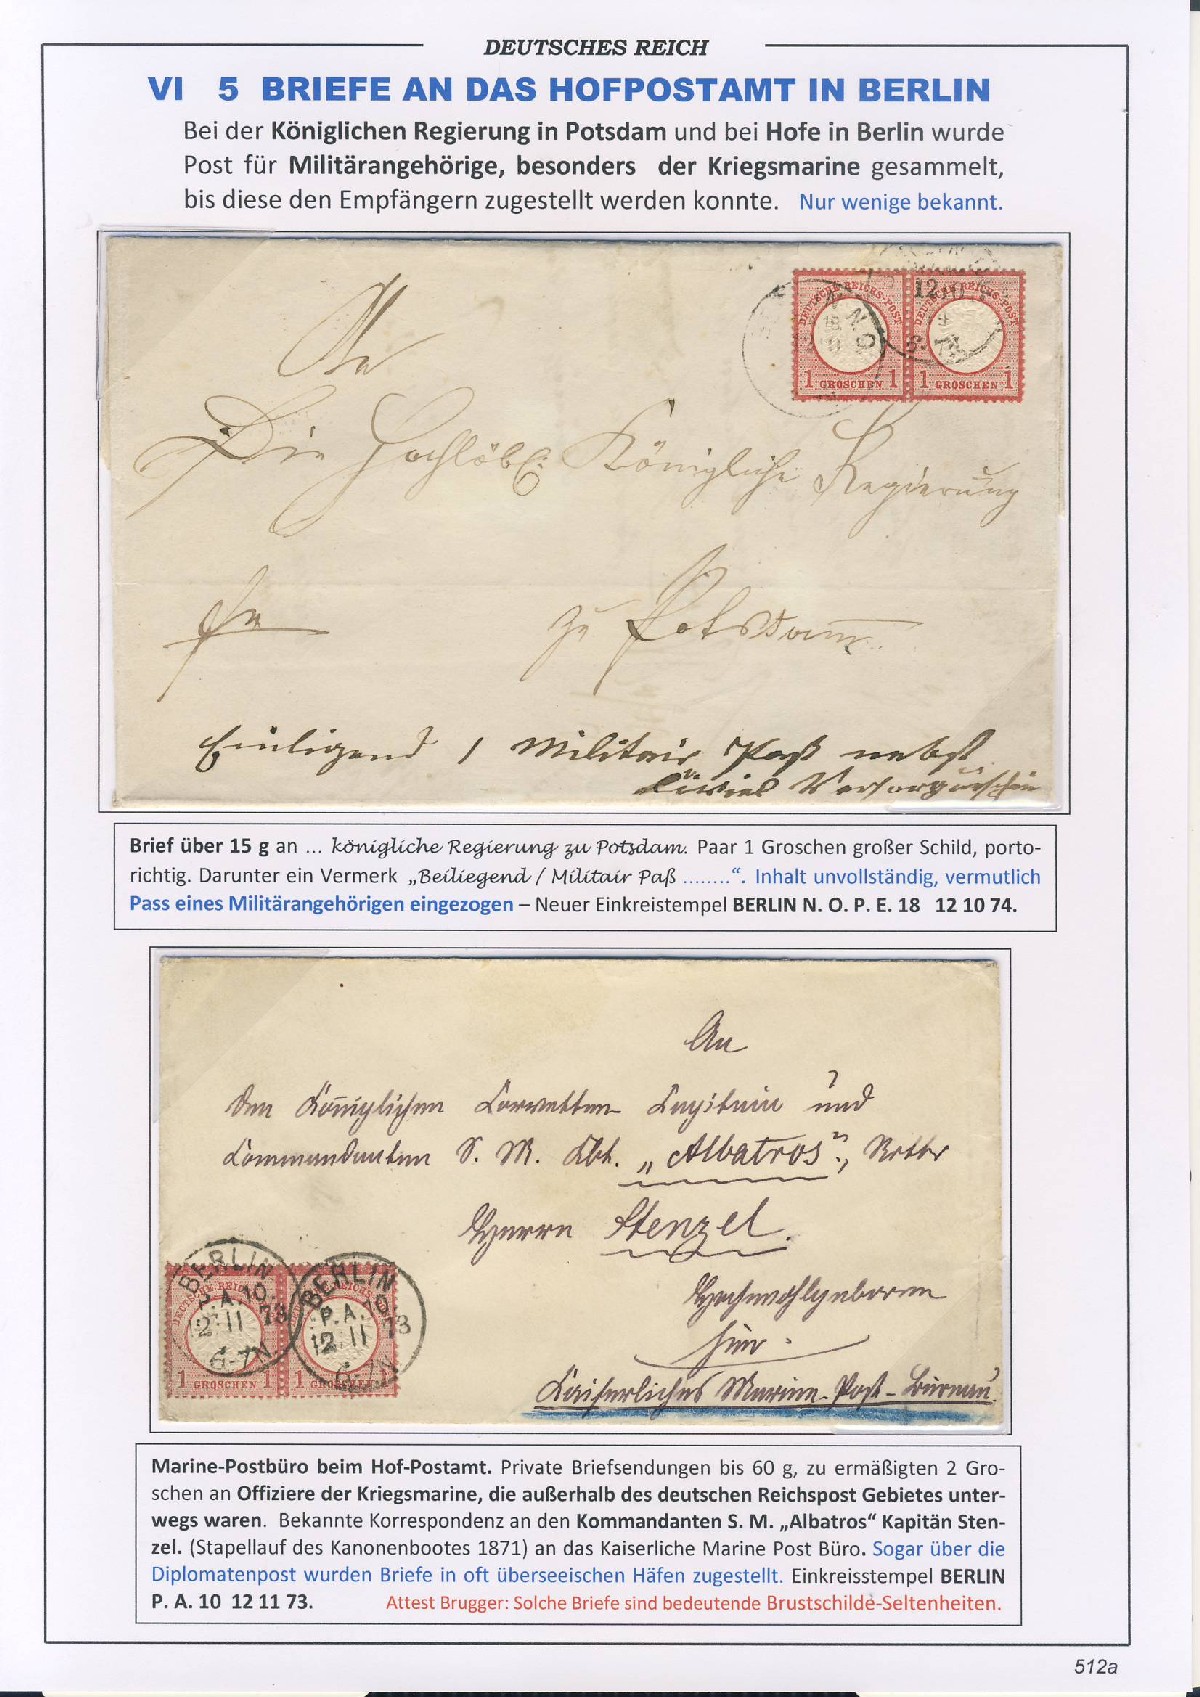 DEUTSCHES REICH
VI 5 BRIEFE AN DAS HOFPOSTAMT IN BERLIN
Bei der Königlichen Regierung in Potsdam und bei Hofe in Berlin wurde
Post für Militärangehörige, besonders der Kriegsmarine gesammelt,
bis diese den Empfängern zugestellt werden konnte. Nur wenige bekannt.
DEUTSCHE REICHS-POST
1 GROSCHEN 1
DEUTSCHE REICHS-POST
1 GROSCHEN 1
12
An
Die Hochlöbl. Königliche Regierung
zu Potsdam
Einligend 1 Militair Paß nebst
Civiel Versorgunsschein
Brief über 15 g an ... königliche Regierung zu Potsdam. Paar 1 Groschen großer Schild, porto-
richtig. Darunter ein Vermerk „Beiliegend / Militair Paß ........“. Inhalt unvollständig, vermutlich
Pass eines Militärangehörigen eingezogen – Neuer Einkreistempel BERLIN N. O. P. E. 18 12 10 74.
An
den Königlichen Corvetten Capitain und
Commandanten S. M. Kbt. „Albatros“, Ritter
Herrn Stenzel.
Hochwohlgeboren
hier.
Kaiserliches Marine-Post-Büreau
BERLIN
P.A.10.
12 11 73
6-7N
BERLIN
P.A.10.
12 11 73
6-7N
1 GROSCHEN 1
1 GROSCHEN 1
Marine-Postbüro beim Hof-Postamt. Private Briefsendungen bis 60 g, zu ermäßigten 2 Gro-
schen an Offiziere der Kriegsmarine, die außerhalb des deutschen Reichspost Gebietes unter-
wegs waren. Bekannte Korrespondenz an den Kommandanten S. M. „Albatros“ Kapitän Sten-
zel. (Stapellauf des Kanonenbootes 1871) an das Kaiserliche Marine Post Büro. Sogar über die
Diplomatenpost wurden Briefe in oft überseeischen Häfen zugestellt. Einkreisstempel BERLIN
P. A. 10 12 11 73. Attest Brugger: Solche Briefe sind bedeutende Brustschilde-Seltenheiten.
512a